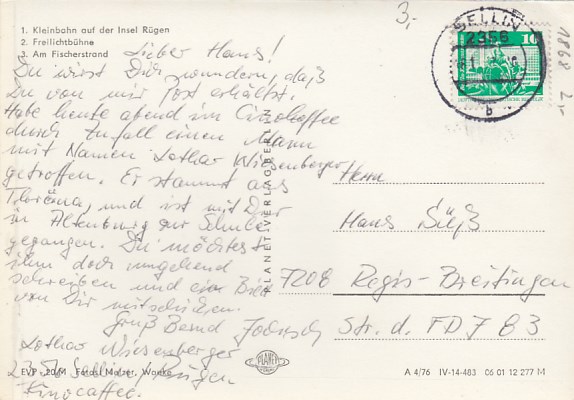 1. Kleinbahn auf der Insel Rügen
2. Freilichtbühne
3. Am Fischerstrand
3,-
SELLIN
2356
b
10
1868 2,-
Lieber Hans!
Du wirst Dich wundern, daß
Du von mir Post erhälst.
Habe heute abend im
durch Zufall einen Mann
mit Namen Lothar Wiesenberger
getroffen. Er stammt aus
und ist mit Dir
in Altenburg zur Schule
gegangen. Du möchtest
ihm doch umgehend
schreiben und ein Bild
von Dir mitschicken.
Gruß Bernd
Lothar Wiesenberger
2356 Sellin/Rügen
Kinocaffee.
PLANET-VERLAG BERLIN
Herrn
Hans Süß
7208 Regis-Breitingen
Str. d. FDJ 83
PLANET
EVP -,20/M Fotos: Melzer, Wanke
A 4/76 IV-14-483 06 01 12 277 M